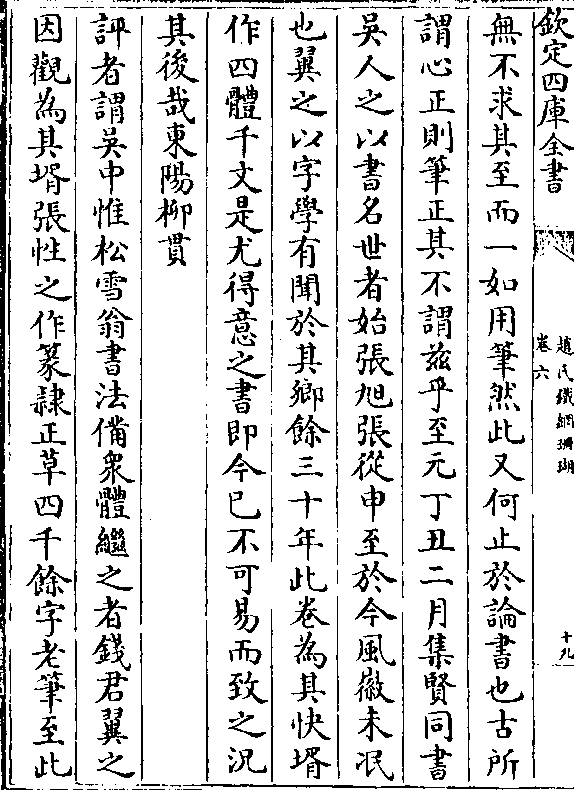 欽定四庫全書
趙氏鐵網珊瑚
卷六
十九
無不求其至而一如用筆然此又何止於論書也古所
謂心正則筆正其不謂兹乎至元丁丑二月集賢同書
吳人之以書名世者始張旭張從申至於今風徽未泯
也翼之以字學有聞於其鄉餘三十年此卷為其快壻
作四體千文是尤得意之書即今已不可易而致之況
其後哉東陽柳貫
評者謂吳中惟松雪翁書法備衆體繼之者錢君翼之
因觀為其壻張性之作篆隸正草四千餘字老筆至此